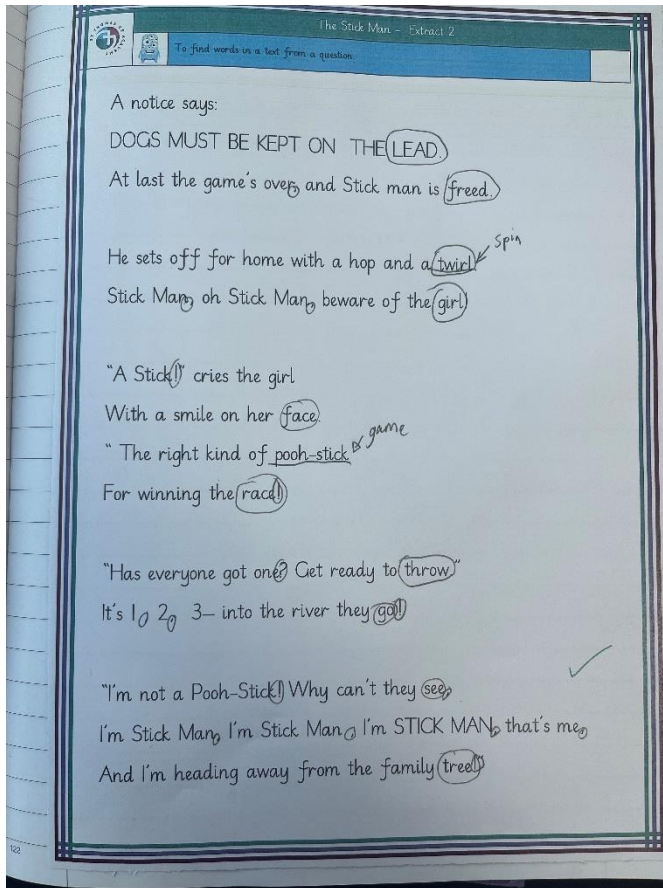 The Stick Man - Extract 2
To find words in a text from a question
A notice says:
DOGS MUST BE KEPT ON THE LEAD.
At last the game's over, and Stick man is freed.
He sets off for home with a hop and a twirl
spin
Stick Man, oh Stick Man, beware of the girl
"A Stick!" cries the girl
With a smile on her face.
game
" The right kind of pooh-stick
For winning the race!
"Has everyone got one? Get ready to throw"
It's 1, 2, 3– into the river they go!
"I'm not a Pooh-Stick! Why can't they see,
I'm Stick Man, I'm Stick Man, I'm STICK MAN, that's me,
And I'm heading away from the family tree!"
122